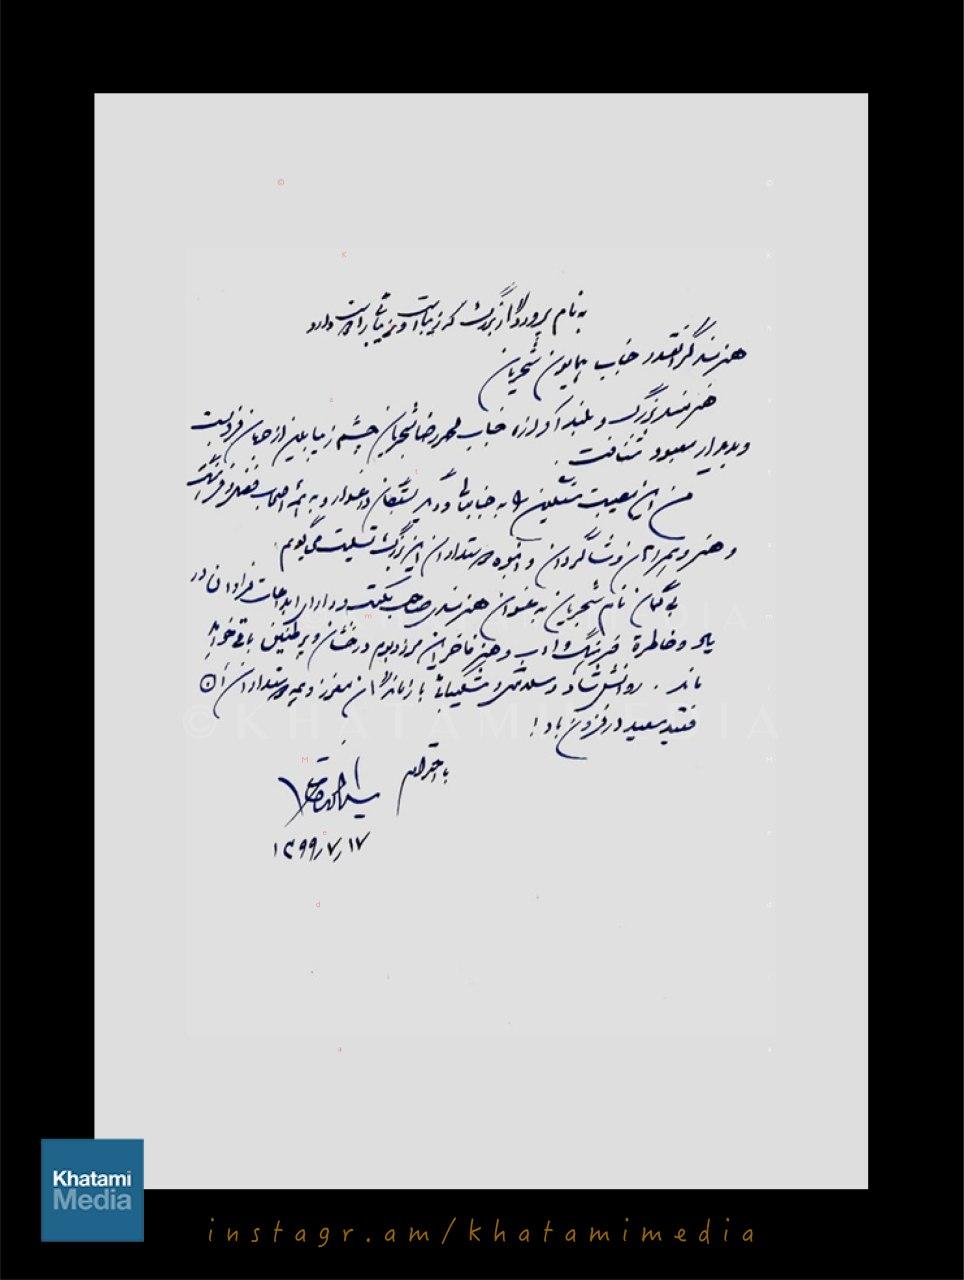 به نام پروردگار بزرگ که زیباست و زیبائی را دوست دارد
هنرمند گرانقدر جناب همایون شجریان
هنرمند بزرگ و بلندآوازه جناب محمدرضا شجریان چشم زیبابین از جهان فروبست
و به دیدار معبود شتافت.
من این مصیبت سنگین را به جنابعالی و دیگر بستگان داغدار و به همه اصحاب فضل و فرهنگ
و هنر و همراهان و شاگردان و انبوه دوستداران این بزرگ تسلیت می‌گویم.
بی‌گمان نام شجریان به عنوان هنرمندی صاحب مکتب و دارای ابداعات فراوان در
یاد و خاطرهٔ فرهنگ و ادب و هنر فاخر این مرز و بوم درخشان و پر طنین باقی خواهد
ماند. روانش شاد و سلامتی و شکیبائی بازماندگان معزز و همه دوستداران آن
فقید سعید در فزون باد!
با احترام
سید محمد خاتمی
۱۳۹۹٫۷٫۱۷
©KHATAMIMEDIA
Khatami
Media
instagr.am/khatamimedia